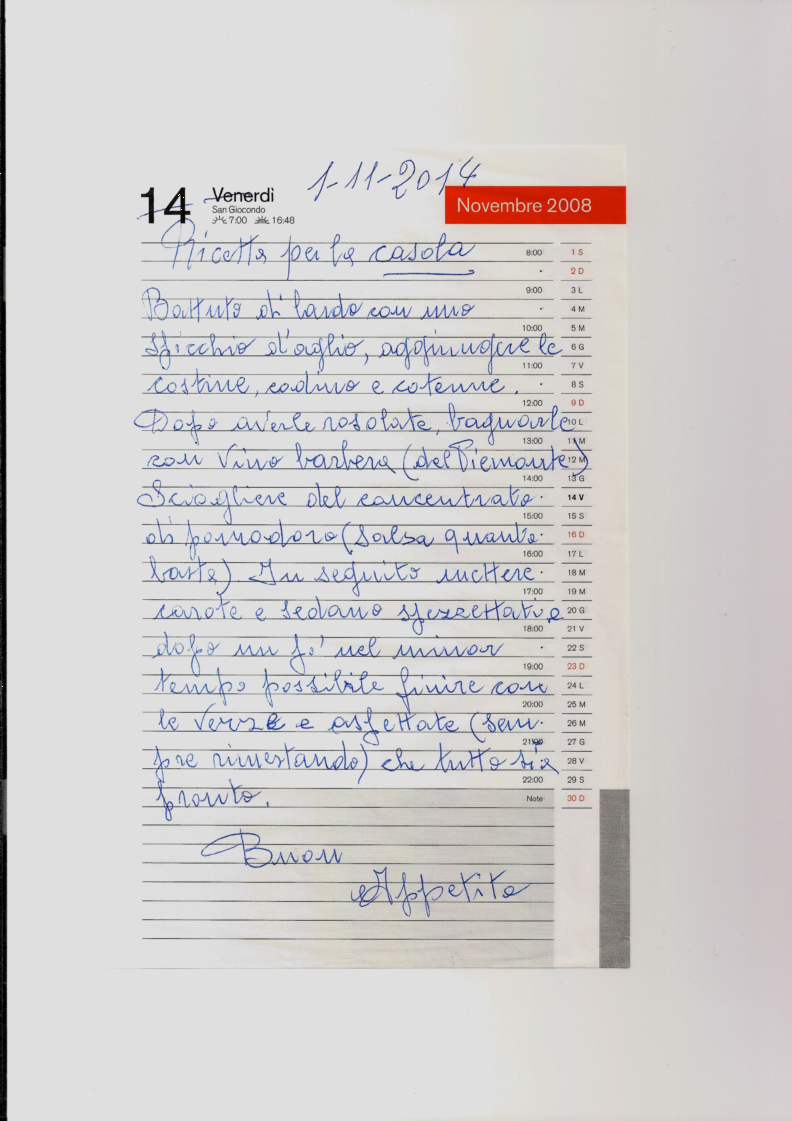 1-11-2014
14 Venerdì
San Giocondo
7:00 16:48
Novembre 2008
Ricetta per la casola
Battuto di lardo con uno
spicchio d'aglio, aggiungere le
costine, codino e cotenne.
Dopo averle rosolate, bagnarle
con Vino barbera (del Piemonte)
Sciogliere del concentrato
di pomodoro (salsa quanto
basta). In seguito mettere
carote e sedano spezzettati, e
dopo un po' nel minor
tempo possibile finire con
le verze e aspettate (sem-
pre rimestando) che tutto sia
pronto.
Buon
Appetito
8:00
9:00
10:00
11:00
12:00
13:00
14:00
15:00
16:00
17:00
18:00
19:00
20:00
21:00
22:00
Note
1 S
2 D
3 L
4 M
5 M
6 G
7 V
8 S
9 D
10 L
11 M
12 M
13 G
14 V
15 S
16 D
17 L
18 M
19 M
20 G
21 V
22 S
23 D
24 L
25 M
26 M
27 G
28 V
29 S
30 D